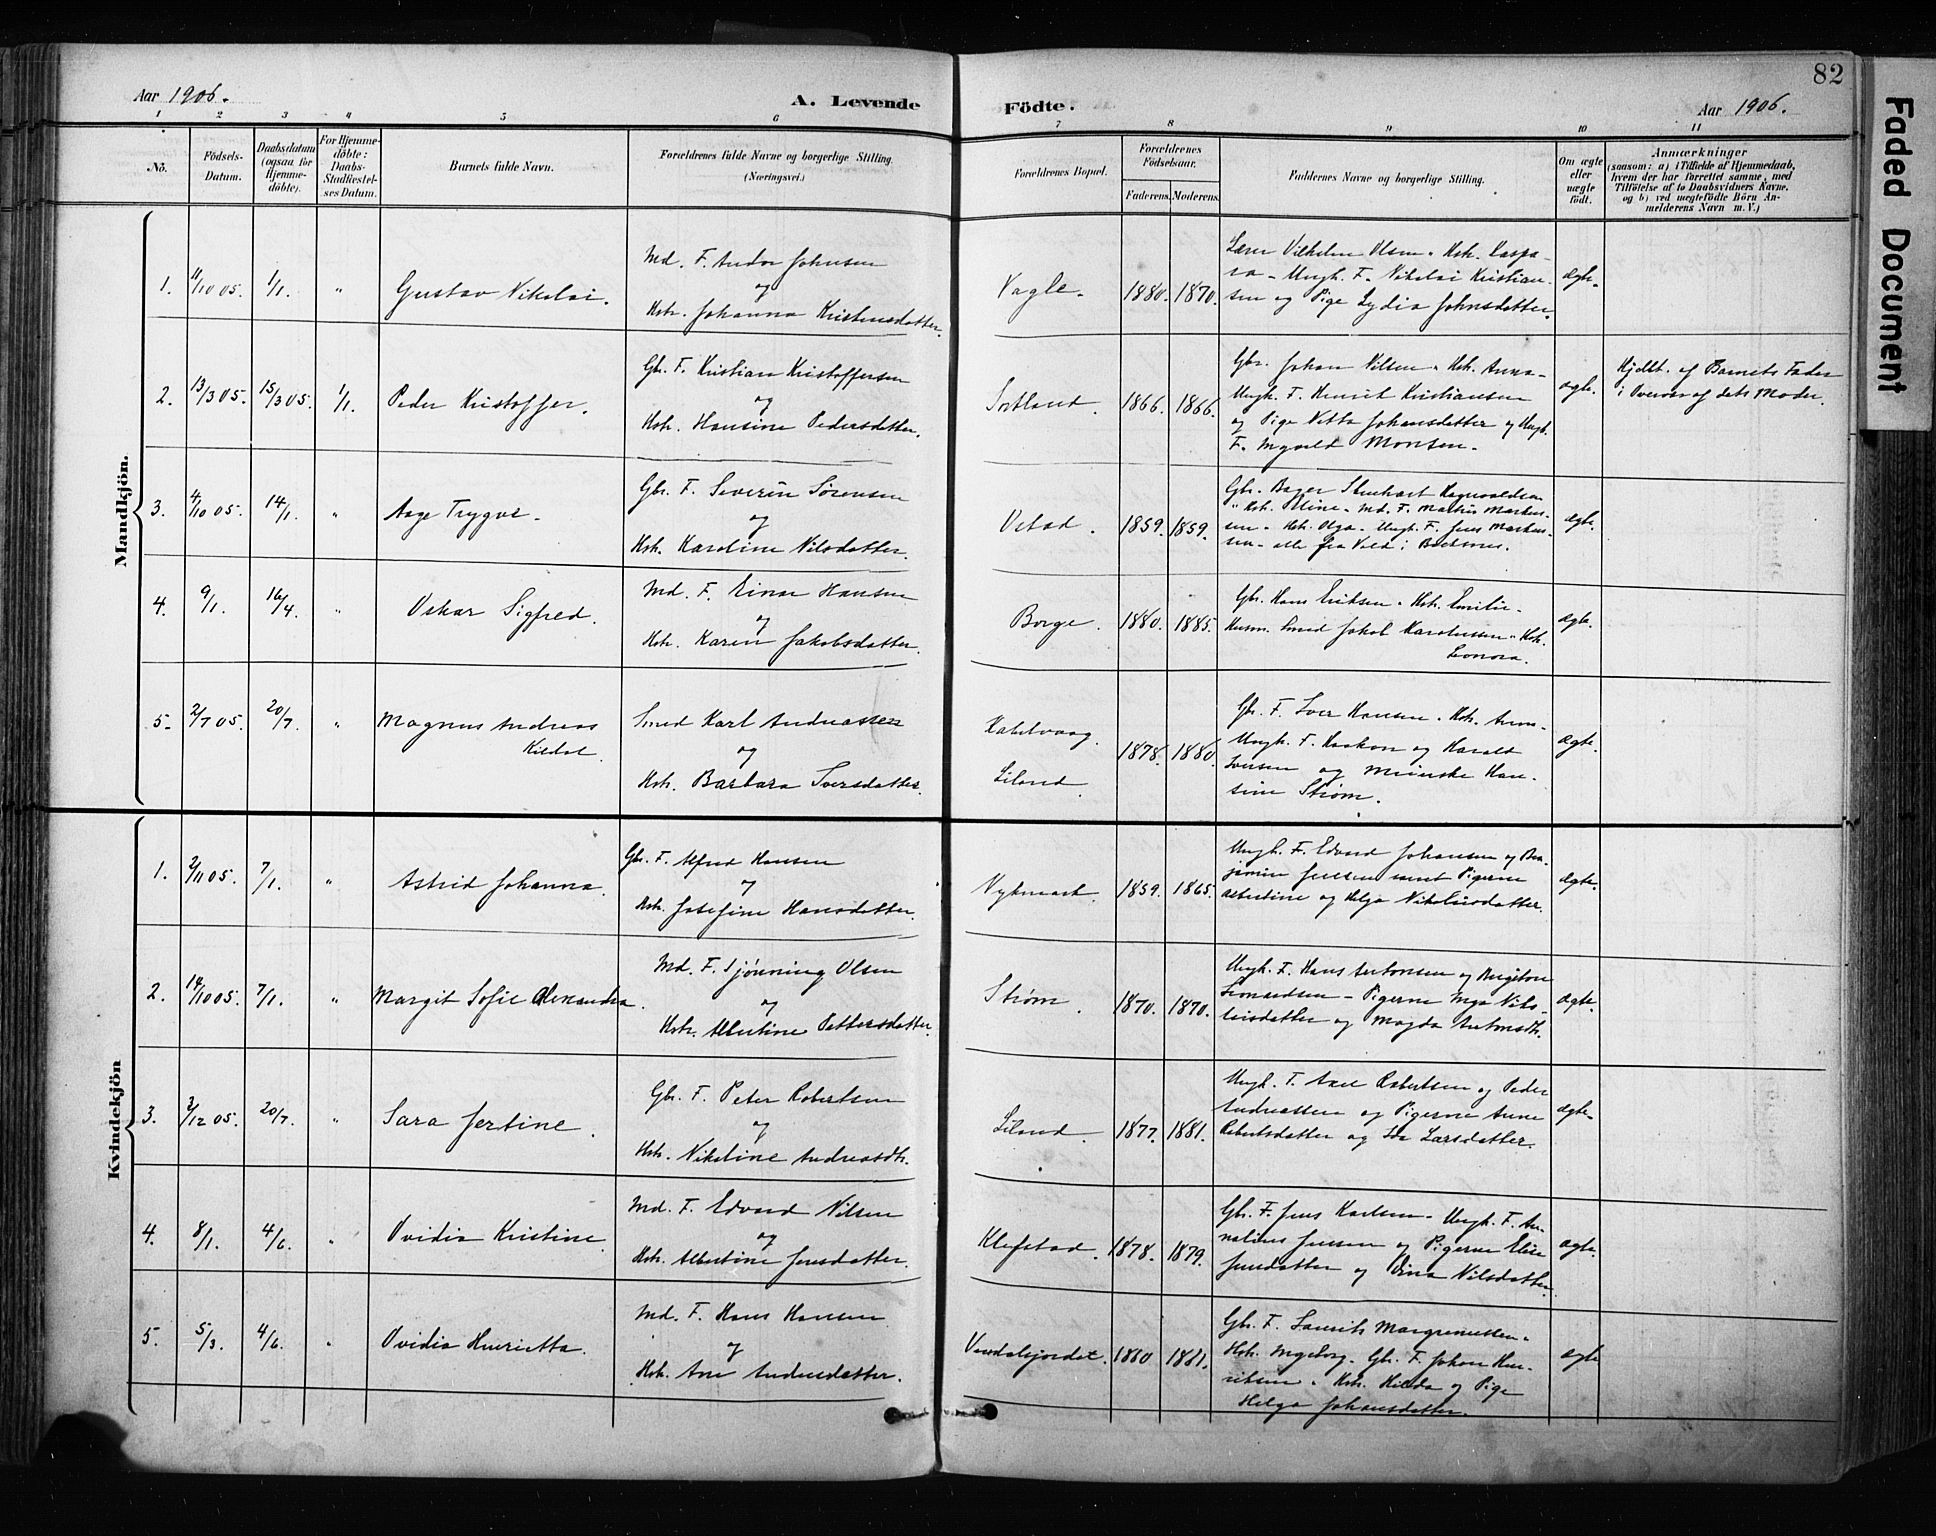 Aar 1906.
A. Levende
Födte.
Aar 1906.
82
Faded Document
1 2 3 4 5 6 7 8 9 10 11
No.
Födsels-Datum.
Daabsdatum (ogsaa for Hjemme-döbte).
For Hjemme-döbte: Daabs-Stadfæstel-ses Datum.
Barnets fulde Navn.
Forældrenes fulde Navne og borgerlige Stilling. (Næringsvei.)
Forældrenes Bopæl.
Forældrenes Födselsaar.
Faderens. Moderens.
Faddernes Navne og borgerlige Stilling.
Om ægte eller uægte födt.
Anmærkninger
(saasom: a) i Tilfælde af Hjemmedaab, hvem der har forrettet samme, med Tilföielse af to Daabsvidners Navne, og b) ved uægtefödte Börn Anmelderens Navn m. V.)
Mandkjön.
1. 11/10 05. 1/1. " Gustav Nikolai.
Md. F. Andor Johnsen
og
Hstr. Johanna Kristensdatter.
Vagle. 1880. 1870.
Lærer Vilhelm Olsen. Hstr. Caspa-
ra - Ungk. F. Nikolai Kristian-
sen og Pige Lydia Johnsdatter.
ægte.
2. 13/3 05. 15/3 05. 1/1. Peder Kristoffer.
Gbr. F. Kristian Kristoffersen
og
Hstr. Hansine Pedersdatter.
Sortland. 1866. 1866.
Gbr. Johan Nilsen. Hstr. Anna -
Ungk. F. Henrik Kristiansen
og Pige Johansdatter og Ungk.
F. Ingvald Monsen.
ægte.
Hjdbt. af Barnets Fader
i Overvær af dets Moder.
3. 4/10 05. 14/1. " Aage Trygve.
Gbr. F. Severin Sørensen
og
Hstr. Karoline Nilsdatter.
1859. 1859.
Gbr. Hstr. Md. F. Markus Markus-
sen. Hstr. Olga. Ungk. F. Jens Markus-
sen - alle fra
ægte.
4. 9/1. 16/4. " Oskar Sigfred.
Md. F. Einar Hansen
og
Hstr. Karen Jakobsdatter.
Borge. 1880. 1885.
Gbr. Hans Eriksen. Hstr. Emilie -
Husm. Smed Jakob Hstr.
Leonora.
ægte.
5. 2/7 05. 20/7. " Magnus Andreas
Kildal.
Smed Karl Andreassen
og
Hstr. Barbara Iversdatter.
Kabelvaag.
Liland. 1878. 1880.
Gbr. F. Iver Hansen. Hstr. Anna -
Ungk. F. Haakon og Harald
Iversen og Han-
sine Strøm.
ægte.
Kvindekjön
1. 2/11 05. 7/1. " Astrid Johanna.
Gbr. F. Alfred Hansen
og
Hstr. Josefine Hansdatter.
Nykmark. 1859. 1865.
Ungk. F. Edvard Johansen og Ben-
jamin Jensen samt Pigerne
Albertine og Helga Nikolaisdatter.
ægte.
2. 14/10 05. 7/1. " Margit Sofie Alexandra.
Md. F. Hjønning Olsen
og
Hstr. Albertine Pettersdatter.
Strøm. 1870. 1870.
Ungk. F. Hans Antonsen og
Leonardsen - Pigerne Inga Niko-
laisdatter og Magda Antonsdtr.
ægte.
3. 3/12 05. 20/7. " Sara Jertine.
Gbr. F. Peter Robertsen
og
Hstr. Nikoline Andreasdtr.
Liland. 1877. 1881.
Ungk. F. Axel Robertsen og Peder
Andreassen og Pigerne Anne
Robertsdatter og Ida Larsdatter.
ægte.
4. 8/1. 4/6. " Ovidia Kristine.
Md. F. Edvard Nilsen
og
Hstr. Albertine Jensdatter.
Klefstad. 1878. 1879.
Gbr. F. Jens Karlsen. Ungk. F. An-
Jensen og Pigerne Elise
Jensdatter og Dina Nilsdatter.
ægte.
5. 5/3. 4/6. " Ovidia Henrietta.
Md. F. Hans Hansen
og
Hstr. Ane Andersdatter.
1880 1881.
Gbr. F. Laurits
Hstr. Ingeborg. Gbr. F. Johan Hen-
riksen. Hstr. Hilda og Pige
Helga Johansdatter.
ægte